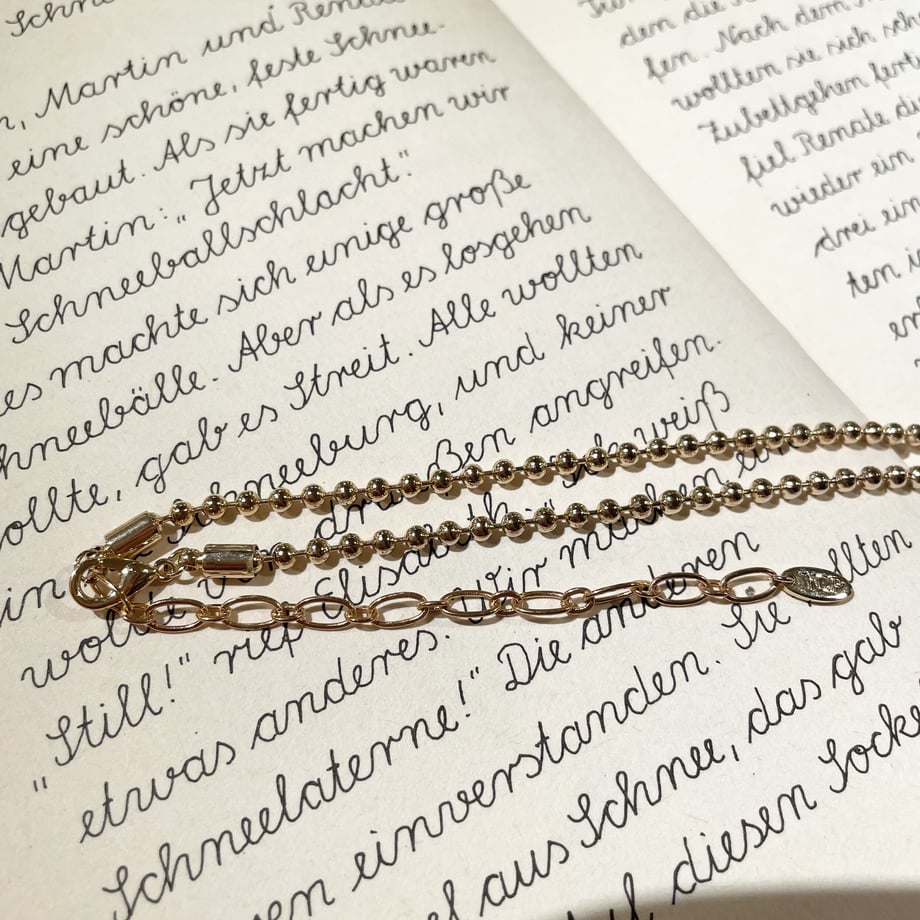 Martin und Renate
eine schöne, feste Schnee-
gebaut. Als sie fertig waren
Martin: „Jetzt machen wir
Schneeballschlacht."
es machte sich einige große
hneebälle. Aber als es losgehen
ollte, gab es Streit. Alle wollten
Schneeburg, und keiner
wollte von draußen angreifen.
„Still!" rief Elisabeth. „Ich weiß
etwas anderes. Wir machen ein
Schneelaterne!" Die anderen
en einverstanden. Sie wollten
el aus Schnee, das gab
diesen Socke
den die
fen. Nach dem
wollten sie sich sch
Zubettgehen fert
fiel Renate die
wieder ein
drei ein
ten i